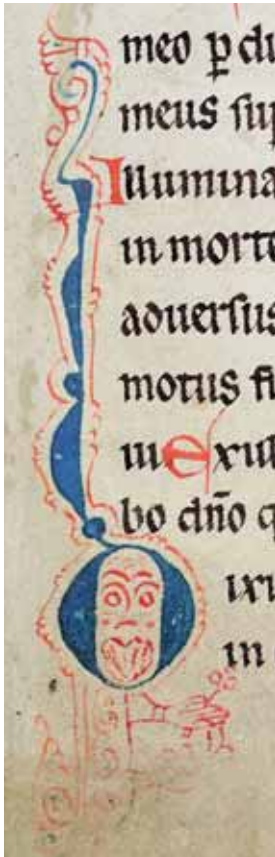 meo ꝑ di
meus sup
Illumina
in morte
aduersus
motus fu
ui exul
bo dño q
Dixi
in